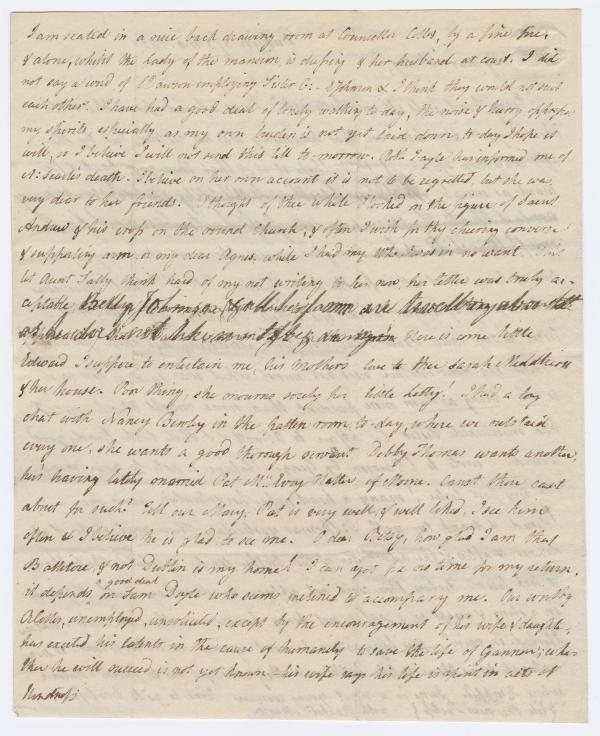 I am seated in a nice back drawing room at Counsellor Colles, by a fine fire,
& alone, whilst the Lady of the mansion is dressing & her husband at court. I did
not say a word of employing Sister & I think they would not suit
each other. I have had a good deal of lonely walking to day, the noise & hurry oppress
my spirits, especially as my own burden is not yet laid down, to day I hope it
will, so I believe I will not send this till to morrow. Doyle has informed me of
death. I believe on her own account it is not to be regretted but she was
very dear to her friends. I thought of thee while I looked on the figure of Saint
Andrew & his cross on the round Church, & often I wish for thy cheering converse
& supporting arm or my dear Agnes. while I had my I was in no want.
let Aunt Sally think hard of my not writing to her now, her letter was truly ac-
ceptable
Here is come little
Edward I suppose to entertain me, his Mothers love to thee Sarah
& her house. Poor thing, she mourns sorely her little Letty! I had a long
chat with Nancy in the room to-day, where we outstaid
every one. she wants a good thorough servant Debby Thomas wants another,
hers having lately married Pat Mc Evoy Hatter of Rome. Canst thou cast
about for such? Tell our Mary, Pat is very well, & well liked, I see him
often & I believe he is glad to see me. O dear Betsy, how glad I am that
Ballitore, & not Dublin is my home! I can yet fix no time for my return,
it depends a good deal on Sam Doyle who seems inclined to accompany me. Our worthy
unemployed, unsolicited, except by the encouragement of his wife & daughter,
has exerted his talents in the cause of humanity to save the life of Gannon; whe-
ther he will succeed is not yet known - his wife says his life is spent in acts of
kindness